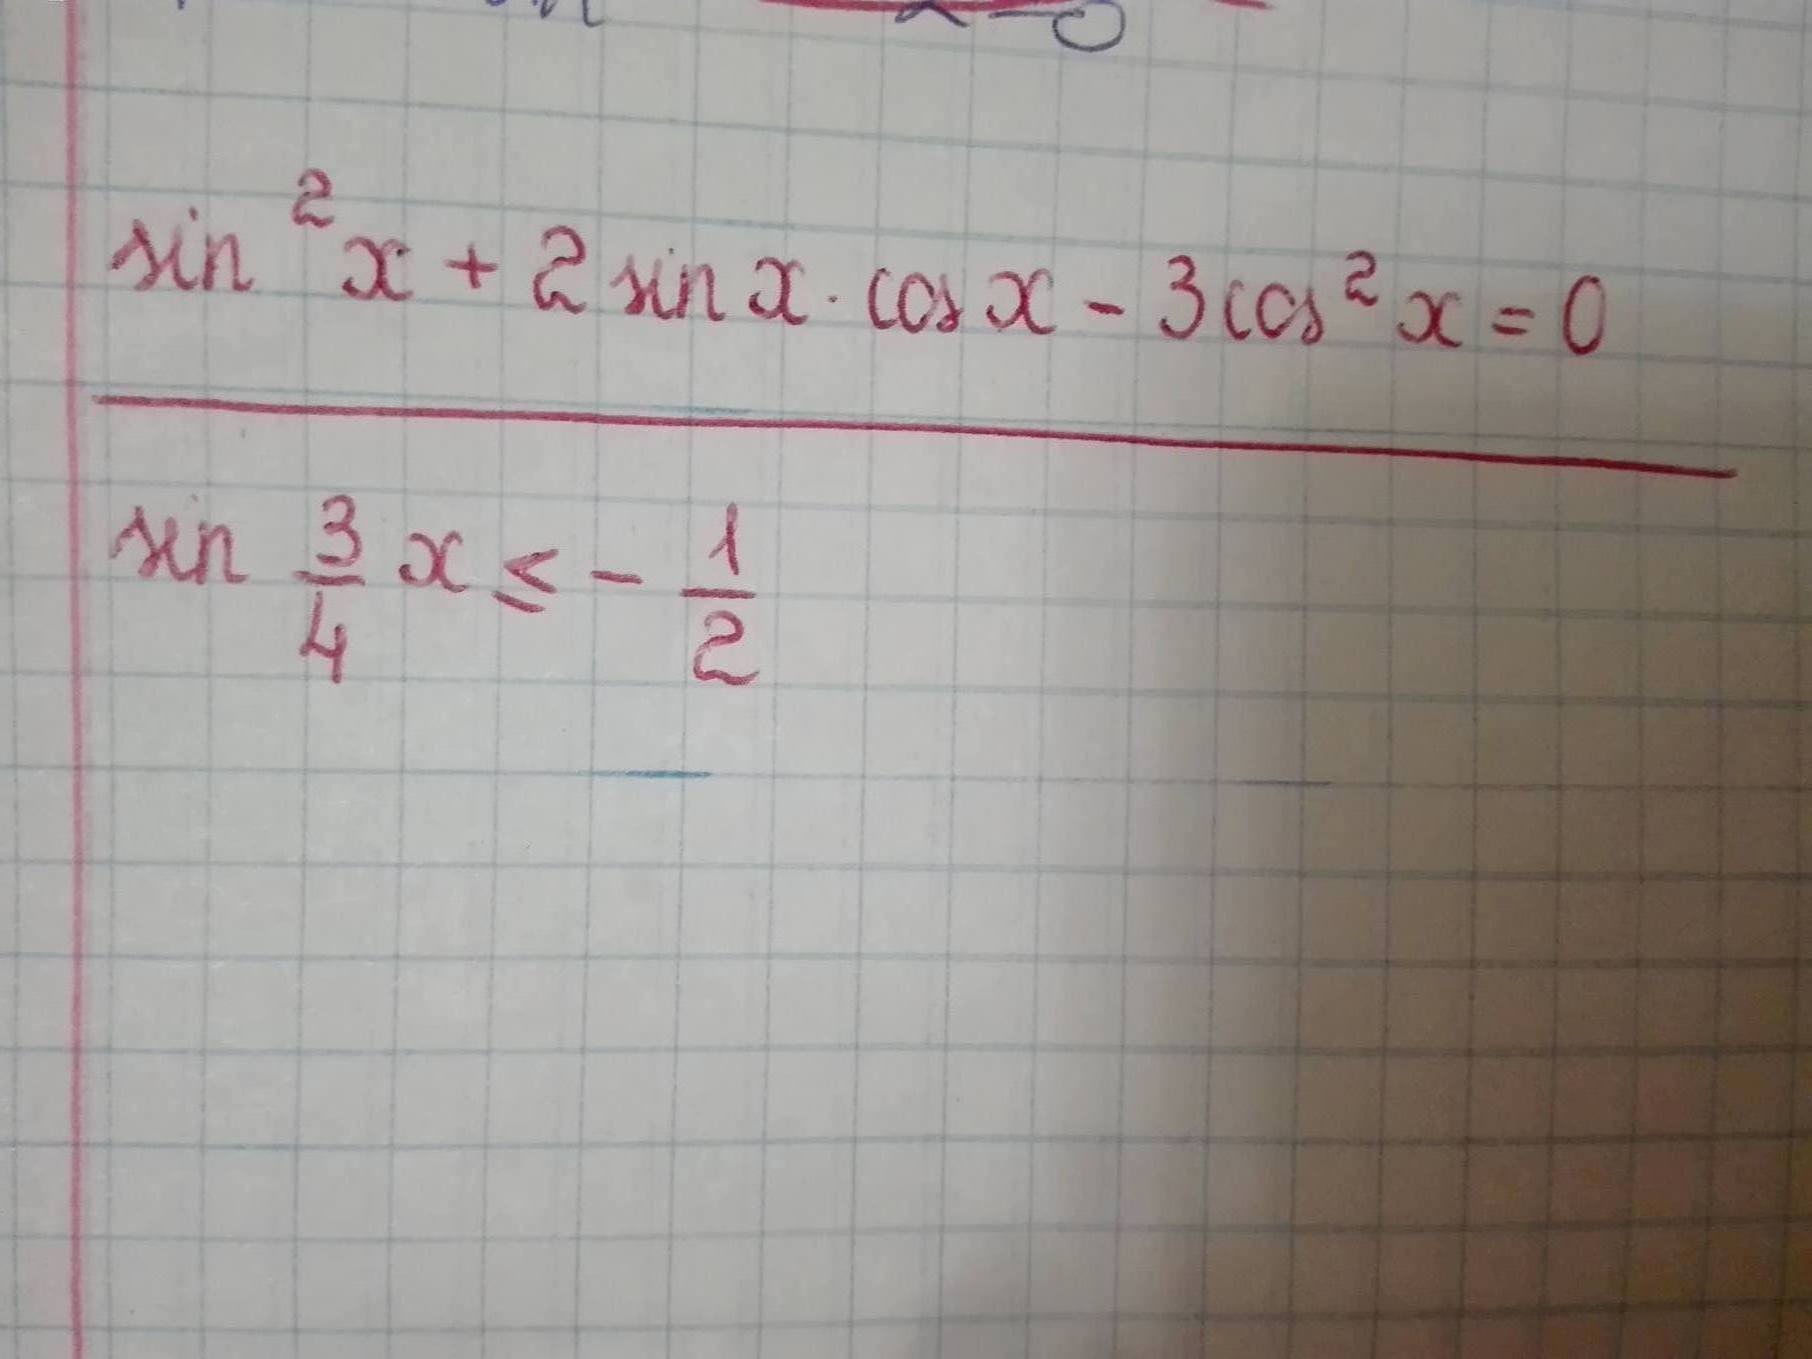 sin²x + 2 sin x · cos x - 3 cos²x = 0
sin 3/4 x ≤ - 1/2